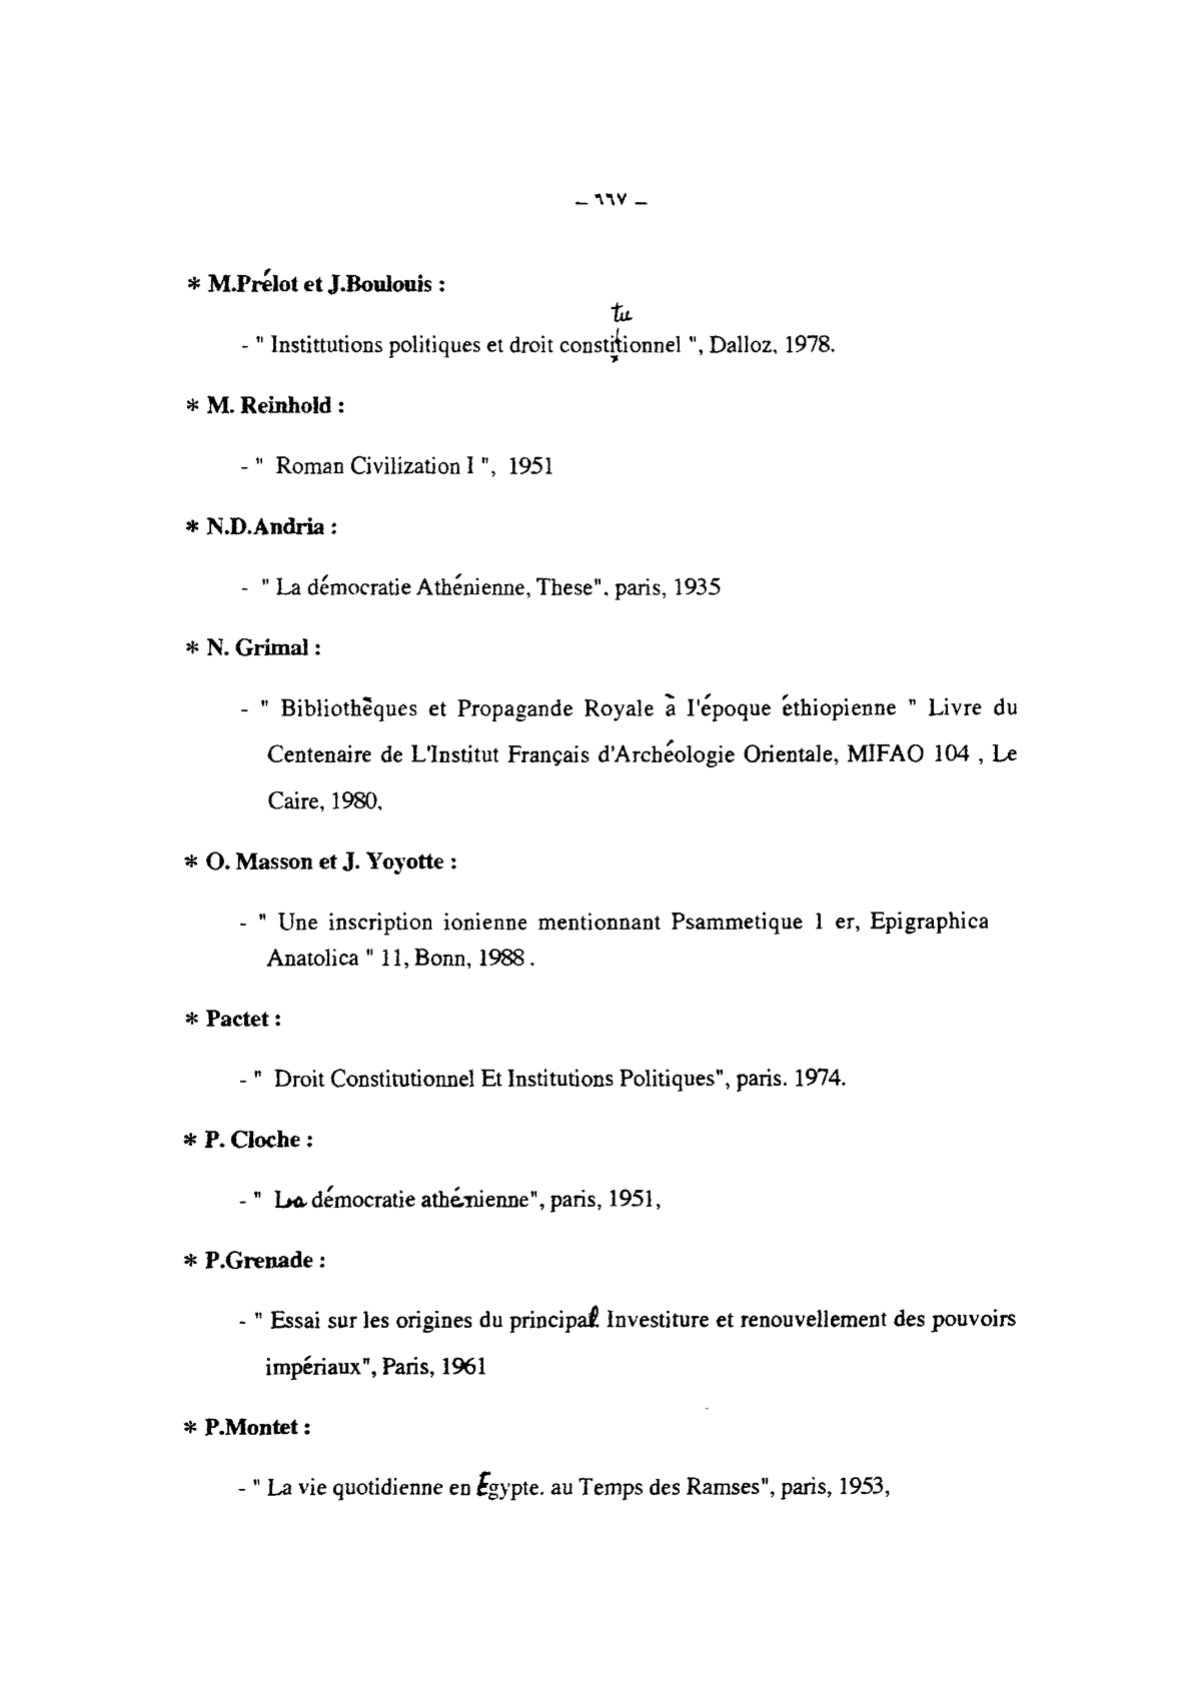 – ٦٦٧ –
* M.Prélot et J.Boulouis :
tu
- " Instittutions politiques et droit constitionnel ", Dalloz, 1978.
* M. Reinhold :
- " Roman Civilization I ", 1951
* N.D.Andria :
- " La démocratie Athénienne, These". paris, 1935
* N. Grimal :
- " Bibliothèques et Propagande Royale à I'époque éthiopienne " Livre du
Centenaire de L'Institut Français d'Archéologie Orientale, MIFAO 104 , Le
Caire, 1980,
* O. Masson et J. Yoyotte :
- " Une inscription ionienne mentionnant Psammetique 1 er, Epigraphica
Anatolica " 11, Bonn, 1988 .
* Pactet :
- " Droit Constitutionnel Et Institutions Politiques", paris. 1974.
* P. Cloche :
- " La démocratie athénienne", paris, 1951,
* P.Grenade :
- " Essai sur les origines du principal. Investiture et renouvellement des pouvoirs
impériaux", Paris, 1961
* P.Montet :
- " La vie quotidienne en Égypte. au Temps des Ramses", paris, 1953,